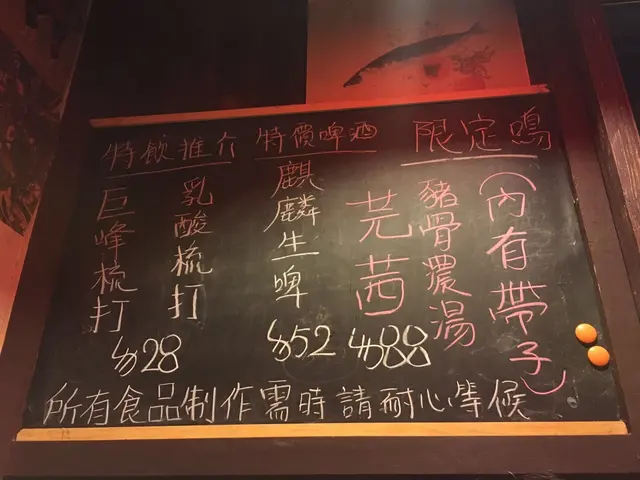 特飲推介
巨峰梳打
乳酸梳打
$28
特價啤酒
麒麟生啤
$52
限定鳴
芫茜
豬骨濃湯
(內有帶子)
$88
所有食品製作需時請耐心等候